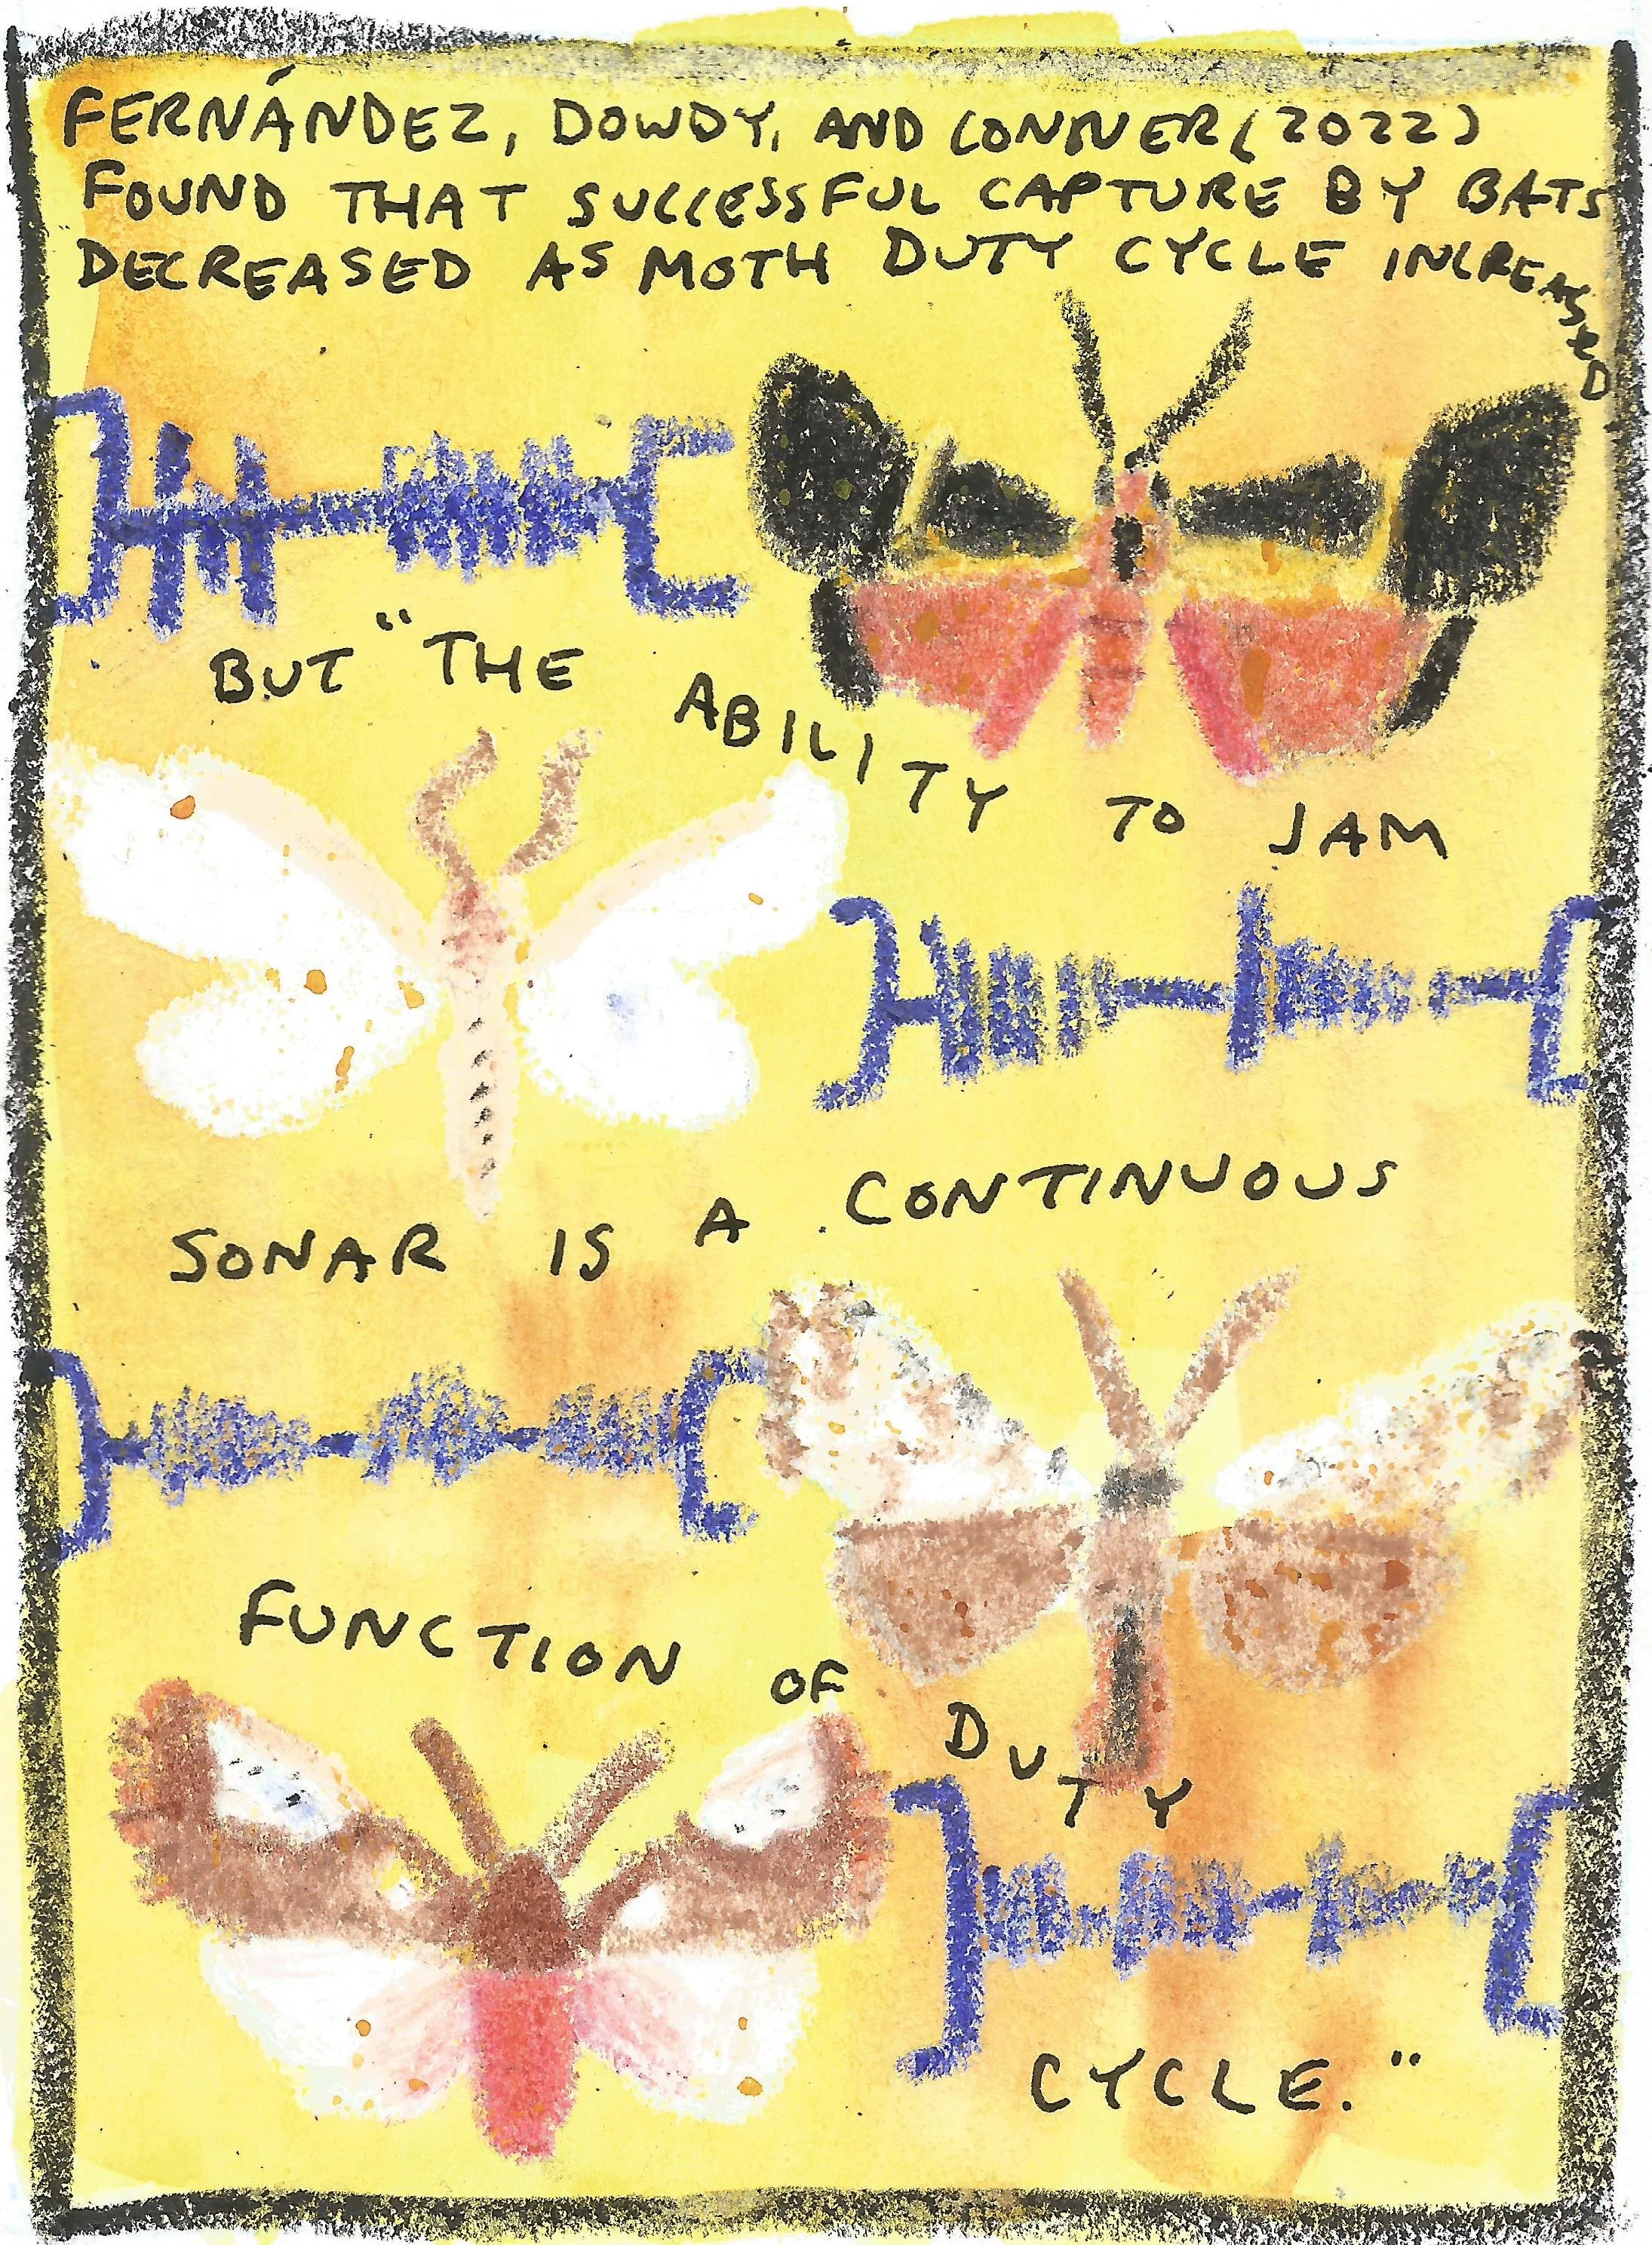 FERNÁNDEZ, DOWDY, AND CONNER (2022)
FOUND THAT SUCCESSFUL CAPTURE BY BATS
DECREASED AS MOTH DUTY CYCLE INCREASED
BUT "THE ABILITY TO JAM
SONAR IS A CONTINUOUS
FUNCTION OF DUTY
CYCLE."